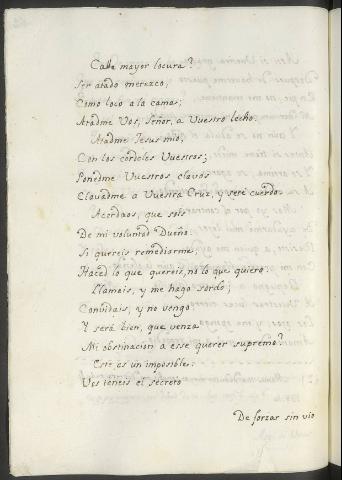 Cabe mayor locura?
Ser atado merezco,
Como loco a la cama;
Atadme Vos, Señor, a Vuestro lecho.
Atadme Jesus mio,
Con los cordeles Vuestros;
Ponedme Vuestros clavos
Clavadme a Vuestra Cruz, y seré cuerdo.
Acordaos, que sois
De mi voluntad Dueño.
Si quereis remediarme,
Haced lo que quereis, no lo que quiero.
Llamais, y me hago sordo;
Convidais, y no vengo.
Y será bien, que venza
Mi obstinacion a esse querer supremo?
Este es un imposible:
Vos teneis el secreto
De forzar sin vio